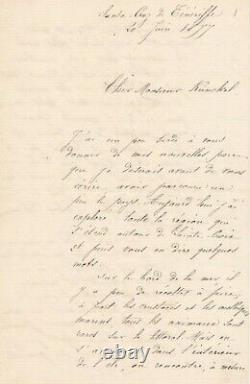 Santa Cruz de Ténériffe
20 Juin 1877
Cher Monsieur Künckel
J'ai un peu tardé à vous
donner de mes nouvelles parce
que je désirais avant de vous
écrire, avoir parcouru un
peu le pays. Aujourd'hui j'ai
exploré toute la région qui
s'étend autour de Sainte Croix
et puis vous en dire quelques
mots.
Sur le bord de la mer il
y a peu de récoltes à faire,
à part les crustacés et les mollusques
marins, tous les animaux sont
rares sur le littoral. Mais en
s'avançant dans l'intérieur
de l'île, on rencontre, à mesure
worthpoint